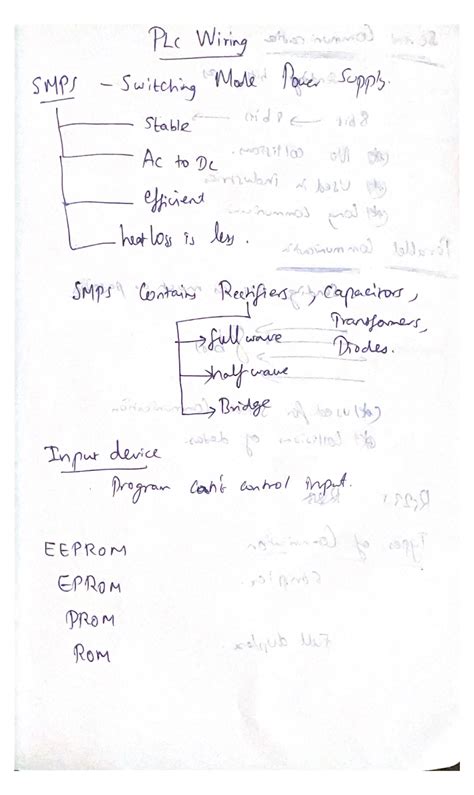 PLC Wiring
SMPS - Switching Mode Power Supply.
Stable
Ac to Dc
efficient
heat loss is less.
SMPS Contains Rectifiers, Capacitors,
Transformers,
Diodes.
full wave
half wave
Bridge
Input device
Program can't control input.
EEPROM
EPROM
PROM
ROM